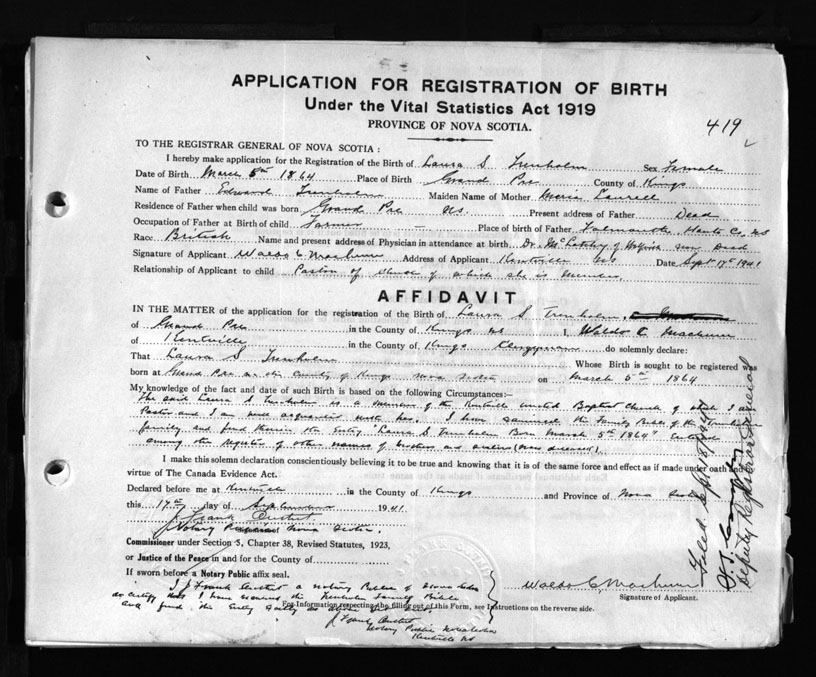 APPLICATION FOR REGISTRATION OF BIRTH
Under the Vital Statistics Act 1919
PROVINCE OF NOVA SCOTIA.
419
TO THE REGISTRAR GENERAL OF NOVA SCOTIA :
I hereby make application for the Registration of the Birth of Laura S. Trenholm Sex Female
Date of Birth March 5th 1864 Place of Birth Grand Pre County of Kings
Name of Father Edward Trenholm Maiden Name of Mother Maria
Residence of Father when child was born Grand Pre NS. Present address of Father Dead
Occupation of Father at Birth of child Farmer Place of birth of Father Falmouth, Hants Co. NS
Race British Name and present address of Physician in attendance at birth Dr. of Dead
Signature of Applicant Waldo C Machum Address of Applicant Kentville NS Date Sept 17th 1941
Relationship of Applicant to child Pastor of church of which she is member.
AFFIDAVIT
IN THE MATTER of the application for the registration of the Birth of Laura S Trenholm,
of Grand Pre in the County of Kings NS I, Waldo C. Machum
of Kentville in the County of Kings Clergyman do solemnly declare:
That Laura S Trenholm Whose Birth is sought to be registered was
born at Grand Pre in the County of Kings Nova Scotia on March 5th 1864
My knowledge of the fact and date of such Birth is based on the following Circumstances:—
The said Laura S Trenholm is a member of the Kentville United Baptist Church of which I am
Pastor and I am well acquainted with her. I have examined the Family Bible of the Trenholm
family and find therein the Entry "Laura S. Trenholm Born March 5th 1864" entered
among the register of other names of brothers and sisters (now deceased).
I make this solemn declaration conscientiously believing it to be true and knowing that it is of the same force and effect as if made under oath and in
virtue of The Canada Evidence Act.
Declared before me at Kentville in the County of Kings and Province of Nova Scotia
this 17th day of September 1941.
J Frank
Notary Public Nova Scotia.
Commissioner under Section 3, Chapter 38, Revised Statutes, 1923,
or Justice of the Peace in and for the County of
If sworn before a Notary Public affix seal.
Waldo C. Machum
Signature of Applicant.
I J Frank a notary Public of Nova Scotia
do certify that I have examined the Trenholm Family Bible
and find the Entry as above
For Information respecting the filling out of this Form, see Instructions on the reverse side.
J Frank
Notary Public Nova Scotia
Kentville NS
Filed Sept. 18, 1941
Deputy Registrar General